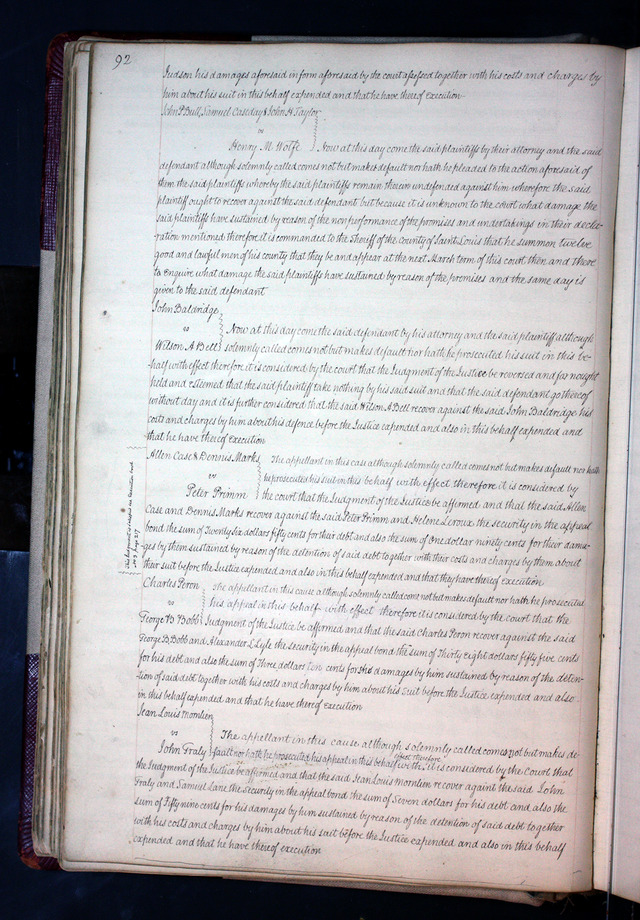 92
Judson his damages aforesaid in form aforesaid by the court assessed together with his costs and charges by
him about his suit in this behalf expended and that he have thereof execution
John P Bull, Samuel Caseday & John H Taylor
vs
Henry M. Wolfe Now at this day come the said plaintiffs by their attorney and the said
defendant although solemnly called comes not but makes default nor hath he pleaded to the action aforesaid of
them the said plaintiffs whereby the said plaintiffs remain therein undefended against him wherefore the said
plaintiff ought to recover against the said defendant but because it is unknown to the court what damage the
said plaintiffs have sustained by reason of the nonperformance of the promises and undertakings in their decla-
ration mentioned therefore it is commanded to the Sheriff of the county of Saint Louis that he summon twelve
good and lawful men of his county that they be and appear at the next March term of this court then and there
to enquire what damage the said plaintiffs have sustained by reason of the premises and the same day is
given to the said defendant
John Baldridge
vs Now at this day come the said defendant by his attorney and the said plaintiff although
Wilson A Bell solemnly called comes not but makes default nor hath he prosecuted his suit in this be-
half with effect therefore it is considered by the court that the Judgment of the Justice be reversed and for nought
held and esteemed that the said plaintiff take nothing by his said suit and that the said defendant go thereof
without day and it is further considered that the said Wilson A Bell recover against the said John Baldridge his
costs and charges by him about his defence before the Justice expended and also in this behalf expended and
that he have thereof execution
Allen Case & Dennis Marks The appellant in this case although solemnly called comes not but makes default nor hath
vs he prosecutes his suit in this behalf with effect therefore it is considered by
Peter Primm the court that the Judgment of the Justice be affirmed and that the said Allen
Case and Dennis Marks recover against the said Peter Primm and Helene Leroux the security in the appeal
bond the sum of Twenty six dollars fifty cents for their debt and also the sum of One dollar ninety cents for their dama-
ges by them sustained by reason of the detention of said debt together with their costs and charges by them about
their suit before the Justice expended and also in this behalf expended and that they have thereof execution
This Judgment is satisfied see Execution Book
No 3 page 217
Charles Peron The appellant in this cause although solemnly called comes not but makes default nor hath he prosecutes
vs his appeal in this behalf with effect therefore it is considered by the court that the
George B Bobb Judgment of the Justice be affirmed and that the said Charles Peron recover against the said
George B Bobb and Alexander L Lyle the security in the appeal bond the sum of Thirty eight dollars fifty five cents
for his debt and also the sum of Three dollars ten cents for his damages by him sustained by reason of the deten-
tion of said debt together with his costs and charges by him about his suit before the Justice expended and also
in this behalf expended and that he have thereof execution
Jean Louis Monlien
vs The appellant in this cause although solemnly called comes not but makes de-
John Fraly fault nor hath he prosecuted his appeal in this behalf with effect therefore it is considered by the Court that
the Judgment of the Justice be affirmed and that the said Jean Louis Monlien recover against the said John
Fraly and Samuel Lane the security in the appeal bond the sum of Seven dollars for his debt and also the
sum of Fifty nine cents for his damages by him sustained by reason of the detention of said debt together
with his costs and charges by him about his suit before the Justice expended and also in this behalf
expended and that he have thereof execution